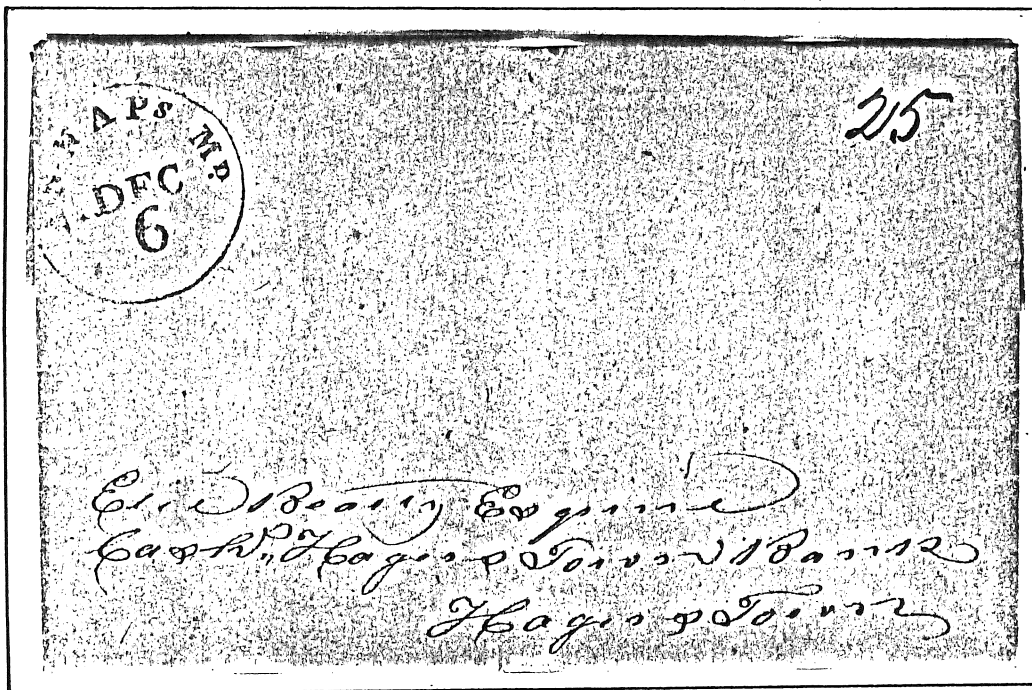 NAPs MD.
DEC
6
25
Elie Beatty Esquire
Cashr. Hagers Town Bank
Hagers Town